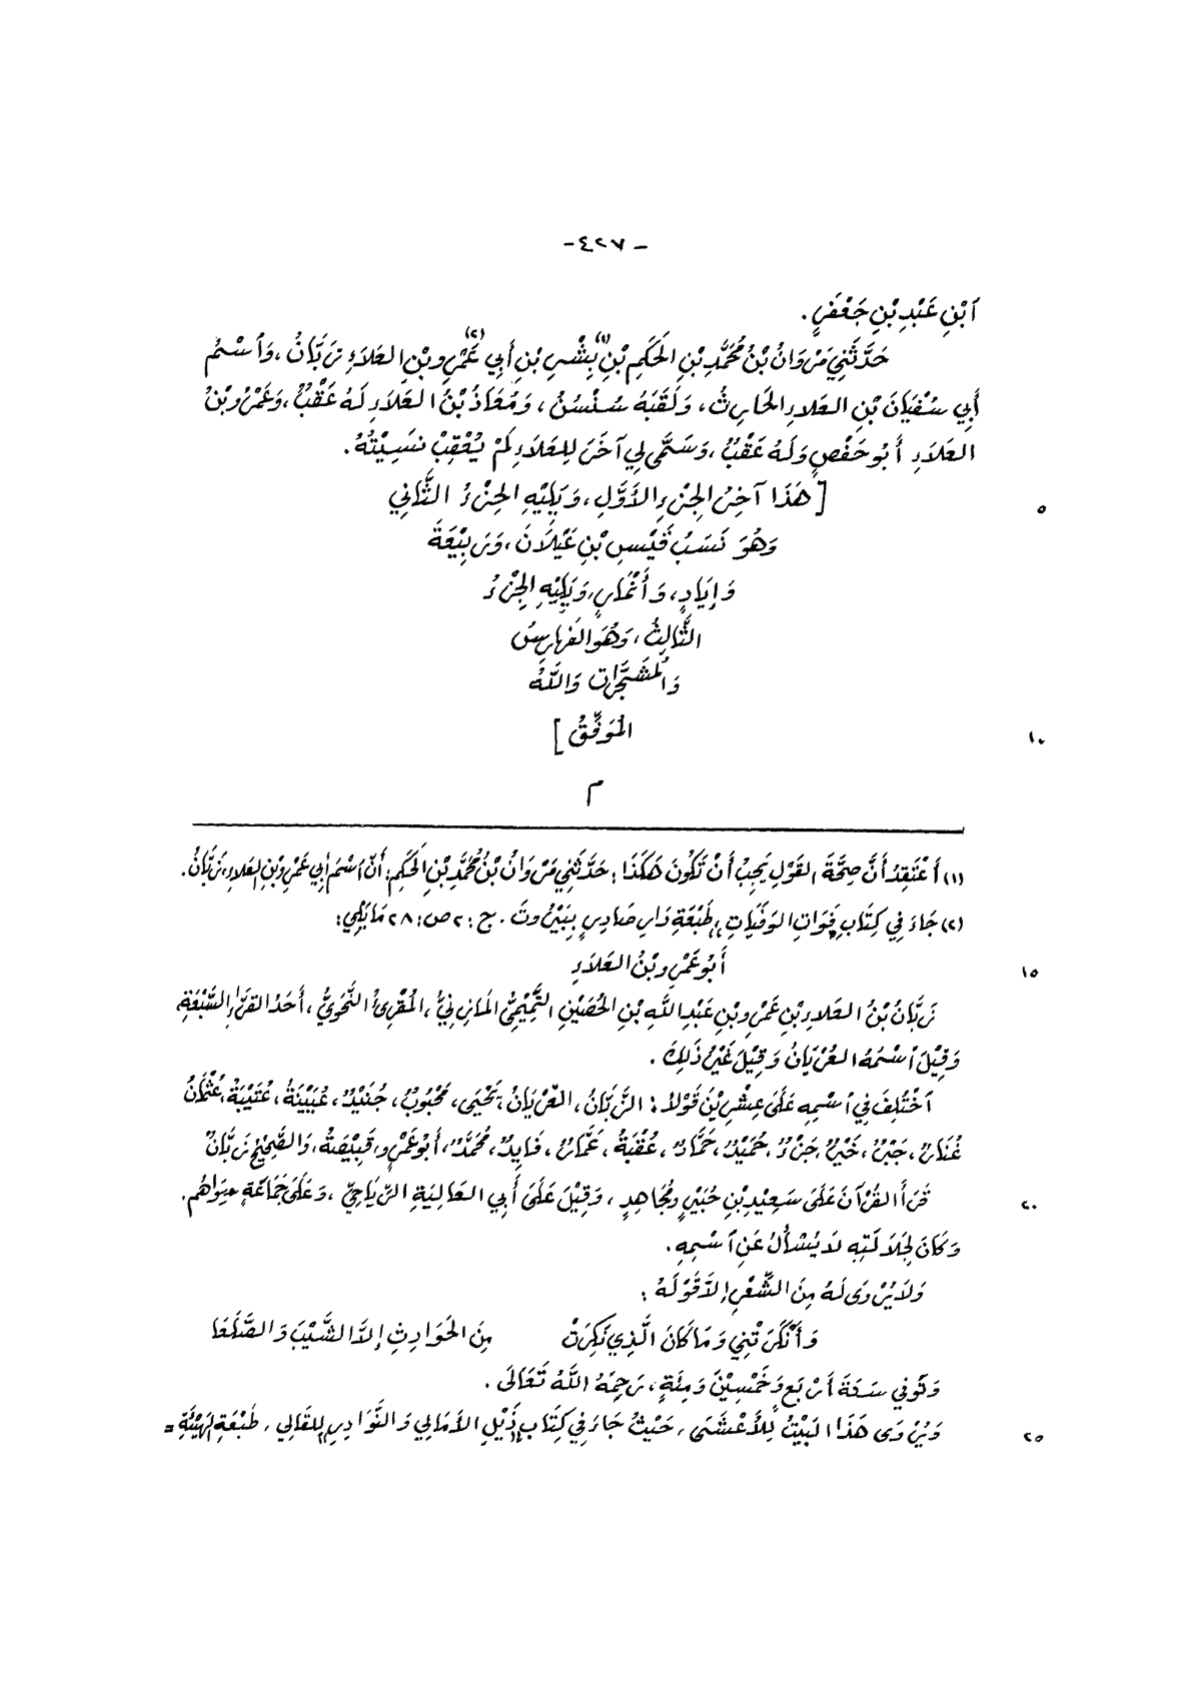 - ٤٢٧ -
ٱبْنِ عَبْدِ بْنِ جَعْفَرٍ .
حَدَّثَنِي مَرْوَانُ بْنُ مُحَمَّدِ بْنِ الحَكَمِ بْنِ (١) بِشْرِ بْنِ أَبِي عَمْرِو بْنِ العَلَاءِ (٢) زَبَّانُ ، وَٱسْمُ
أَبِي سُفْيَانَ بْنِ العَلَاءِ الحَارِثُ ، وَلَقَبَهُ سُنْسُنُ ، وَمُعَاذُ بْنُ العَلَاءِ لَهُ عَقْبٌ ، وَعَمْرُو بْنُ
العَلَاءِ أَبُو حَفْصٍ وَلَهُ عَقْبٌ ، وَسَمَّى لِي آخَرَ لِلعَلَاءِ لَمْ يُعْقِبْ نَسِيْتُهُ .
[ هَذَا آخِرُ الجِزْءِ الأَوَّلِ ، وَيَلِيْهِ الجِزْءُ الثَّانِي
٥
وَهُوَ نَسَبُ قَيْسِ بْنِ عَيْلَانَ ، وَرَبِيْعَةَ
وَإِيَادٍ ، وَأَنْمَارٍ ، وَيَلِيْهِ الجِزْءُ
الثَّالِثُ ، وَهُوَ الفَهَارِسُ
وَالمُشَجَّرَات وَاللَّهُ
المُوَفِّقُ ]
١٠
م
(١) أَعْتَقِدُ أَنَّ صِحَّةَ القَوْلِ يَجِبُ أَنْ تَكُونَ هَكَذَا : حَدَّثَنِي مَرْوَانُ بْنُ مُحَمَّدِ بْنِ الحَكَمِ : أَنَّ ٱسْمَ أَبِي عَمْرِو بْنِ العَلَاءِ زَبَّانُ .
(٢) جَاءَ فِي كِتَابِ فَوَاتِ الوَفَيَاتِ ، طَبْعَةِ دَارِ صَادِرٍ بِبَيْرُوتَ . ج : ٢ ص : ٢٨ مَا يَلِي :
أَبُو عَمْرِو بْنُ العَلَاءِ
١٥
زَبَّانُ بْنُ العَلَاءِ بْنِ عَمْرِو بْنِ عَبْدِ اللَّهِ بْنِ الحُصَيْنِ التَّمِيْمِيُّ المَازِنِيُّ ، المُقْرِئُ النَّحْوِيُّ ، أَحَدُ القُرَّاءِ السَّبْعَةِ
وَقِيْلَ ٱسْمُهُ العُرْيَانُ وَقِيْلَ غَيْرُ ذَلِكَ .
ٱخْتُلِفَ فِي ٱسْمِهِ عَلَى عِشْرِيْنَ قَوْلاً : الزَّبَّانُ ، العُرْيَانُ ، يَحْيَى ، مَحْبُوبٌ ، جُنَيْدٌ ، عُيَيْنَةُ ، عُتَيْبَةُ ، عُثْمَانُ
غُنَارٌ ، جَبْرٌ ، خَيْرٌ ، جَزْءٌ ، حُمَيْدٌ ، حَمَّادٌ ، عُقْبَةُ ، عَمَّارٌ ، فَايِدٌ ، مُحَمَّدٌ ، أَبُو عَمْرٍو ، قَبِيْصَةُ ، وَالصَّحِيْحُ زَبَّانُ
قُرَأَ القُرْآنَ عَلَى سَعِيْدِ بْنِ جُبَيْرٍ وَمُجَاهِدٍ ، وَقِيْلَ عَلَى أَبِي العَالِيَةِ الرِّيَاحِيِّ ، وَعَلَى جَمَاعَةٍ سِوَاهُم .
٢٠
وَكَانَ لِجَلَالَتِهِ لَا يُسْأَلُ عَنِ ٱسْمِهِ .
وَلَا يُرْوَى لَهُ مِنَ الشِّعْرِ إِلَّا قَوْلَهُ :
وَأَنْكَرَتْنِي وَمَا كَانَ الَّذِي نَكِرَتْ مِنَ الحَوَادِثِ إِلَّا الشَّيْبَ وَالصَّلَعَا
وَتُوفِي سَنَةَ أَرْبَعٍ وَخَمْسِيْنَ وَمِئَةٍ ، رَحِمَهُ اللَّهُ تَعَالَى .
وَيُرْوَى هَذَا البَيْتُ لِلأَعْشَى ، حَيْثُ جَاءَ فِي كِتَابِ ذَيْلِ الأَمَالِي وَالنَّوَادِرِ لِلقَالِي ، طَبْعَةِ الهَيْئَةِ =
٢٥